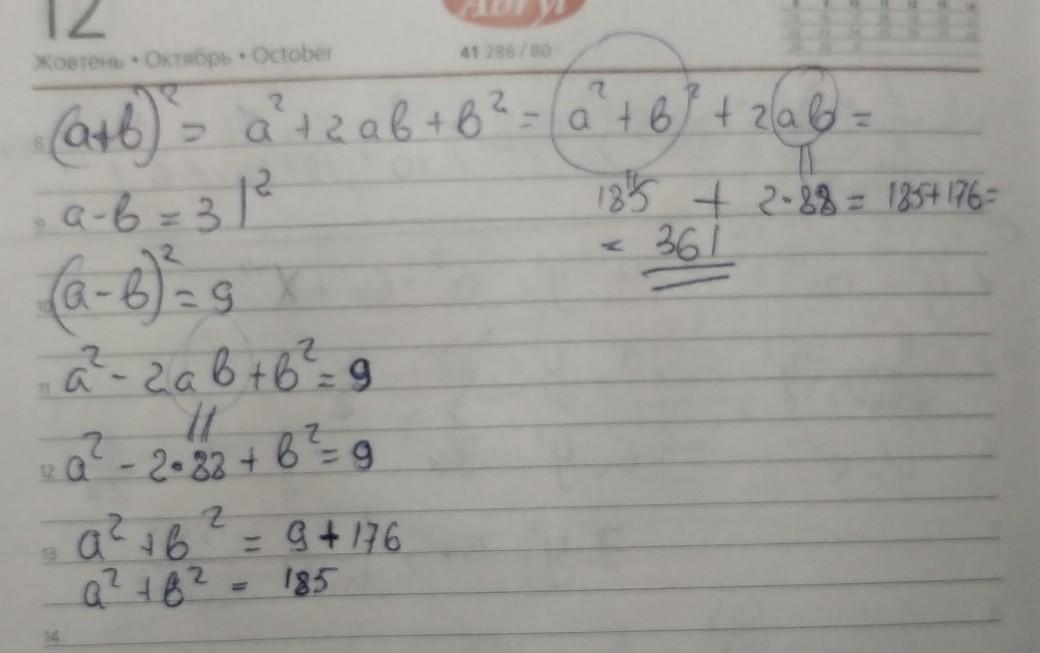 12
Жовтень • Октябрь • October
41 286/80
(a+b)² = a² + 2ab + b² = a² + b² + 2ab =
185 + 2·88 = 185+176=
= 361
8
9 a-b = 3 |²
10 (a-b)² = 9
11 a² - 2ab + b² = 9
12 a² - 2·88 + b² = 9
13 a² + b² = 9 + 176
a² + b² = 185
14